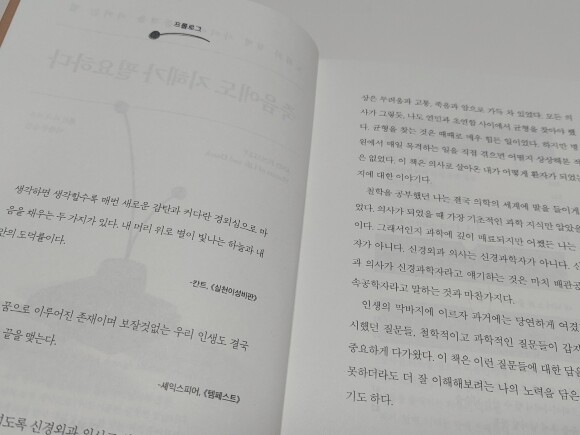 프롤로그
죽음에도 지혜가 필요하다
생각하면 생각할수록 매번 새로운 감탄과 커다란 경외심으로 마
음을 채우는 두 가지가 있다. 내 머리 위로 별이 빛나는 하늘과 내
안의 도덕률이다.
-칸트, 《실천이성비판》
꿈으로 이루어진 존재이며 보잘것없는 우리 인생도 결국
끝을 맺는다.
-셰익스피어, 《템페스트》
신경외과 의사로
상은 두려움과 고통, 죽음과 암으로 가득 차 있었다. 모든 의
사가 그렇듯, 나도 연민과 초연함 사이에서 균형을 찾아야 했
다. 균형을 찾는 것은 때때로 매우 힘든 일이었다. 하지만 병
원에서 매일 목격하는 일을 직접 겪으면 어떨지 상상해본 적
은 없었다. 이 책은 의사로 살아온 내가 어떻게 환자가 되었는
지에 대한 이야기다.
철학을 공부했던 나는 결국 의학의 세계에 발을 들이게
었다. 의사가 되었을 때 가장 기초적인 과학 지식만 알았을
이다. 그래서인지 과학에 깊이 매료되지만 어쨌든 나는
자가 아니다. 신경외과 의사는 신경과학자가 아니다. 신
과 의사가 신경과학자라고 얘기하는 것은 마치 배관공
속공학자라고 말하는 것과 마찬가지다.
인생의 막바지에 이르자 과거에는 당연하게 여겼
시했던 질문들, 철학적이고 과학적인 질문들이 갑자
중요하게 다가왔다. 이 책은 이런 질문들에 대한 답을
못하더라도 더 잘 이해해보려는 나의 노력을 담은
기도 하다.